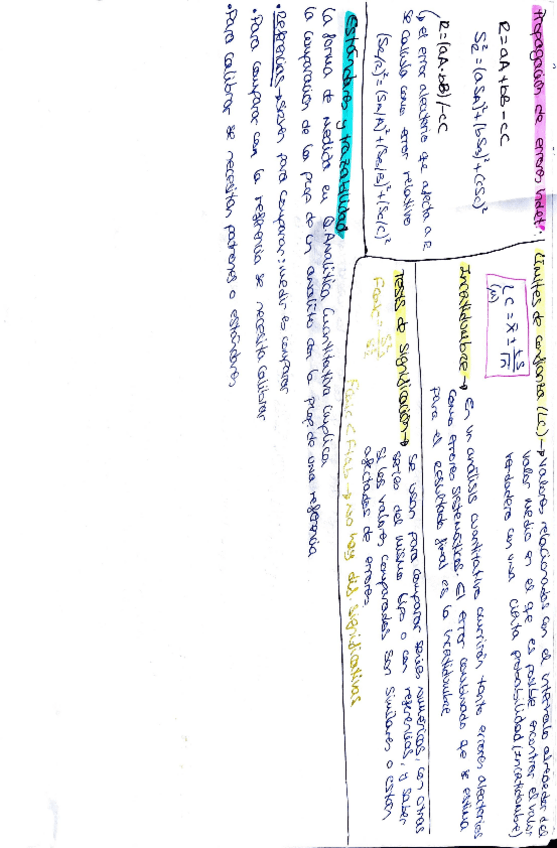 Propagación de errores indet.
R = aA + bB - cC
S²R = (aSA)² + (bSB)² + (cSc)²
R = (aA·bB)/cC
↳ el error aleatorio qe afecta a R
se calcula como error relativo
(SR/R)² = (SA/A)² + (SB/B)² + (Sc/C)²
Límites de confianza (LC) → Valores relacionados con el intervalo alrededor del
valor medio en el qe es posible encontrar el valor
verdadero con una cierta probabilidad (incertidumbre)
LC = x̄ ± ts/√n
(N)
Incertidumbre → En un análisis cuantitativo ocurrirán tanto errores aleatorios
como errores sistemáticos. El error combinado qe se estima
para el resultado final es la incertidumbre
Tests de significación → Se usan para comparar series numéricas, con otras
series del mismo tipo o con referencias, y saber
si los valores comparados son similares o están
afectados de errores
Fcalc < Ftab → no hay dif. significativas
Estándares y trazabilidad
La forma de medida en Q. Analítica Cuantitativa implica
la comparación de la prop de un analito con la prop de una referencia
• Referencias → sirven para comparar: medir es comparar
• Para comparar con la referencia se necesita calibrar
• Para calibrar se necesitan patrones o estándares